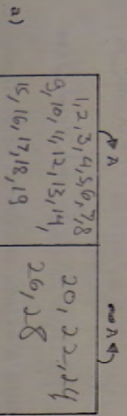 a)
A
1,2,3,4,5,6,7,8
9,10,11,12,13,14,
15,16,17,18,19
A
20,22,24
26,28